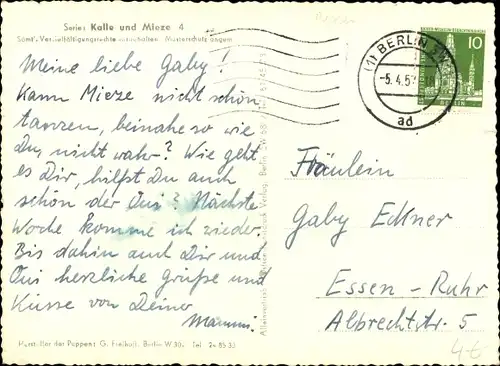 Series Kalle und Mieze 4
Sämtl. Vervielfältigungsrechte vorbehalten Musterschutz angem.
Meine liebe Gaby!
Kann Mieze nicht schön
tanzen, beinahe so wie
Du, nicht wahr? Wie geht
es Dir, hilfst Du auch
schön der Omi? Nächste
Woche komme ich wieder.
Bis dahin auch Dir und
Omi herzliche Grüße und
Küsse von Deine
Mammi
Hersteller der Puppen: G. Freihoff, Berlin W 30, Tel. 24 85 33
Berlin
(1) BERLIN
-5.4.5
ad
10
BERLIN
Fräulein
Gaby Eckner
Essen-Ruhr
Albrechtstr. 5
4,-